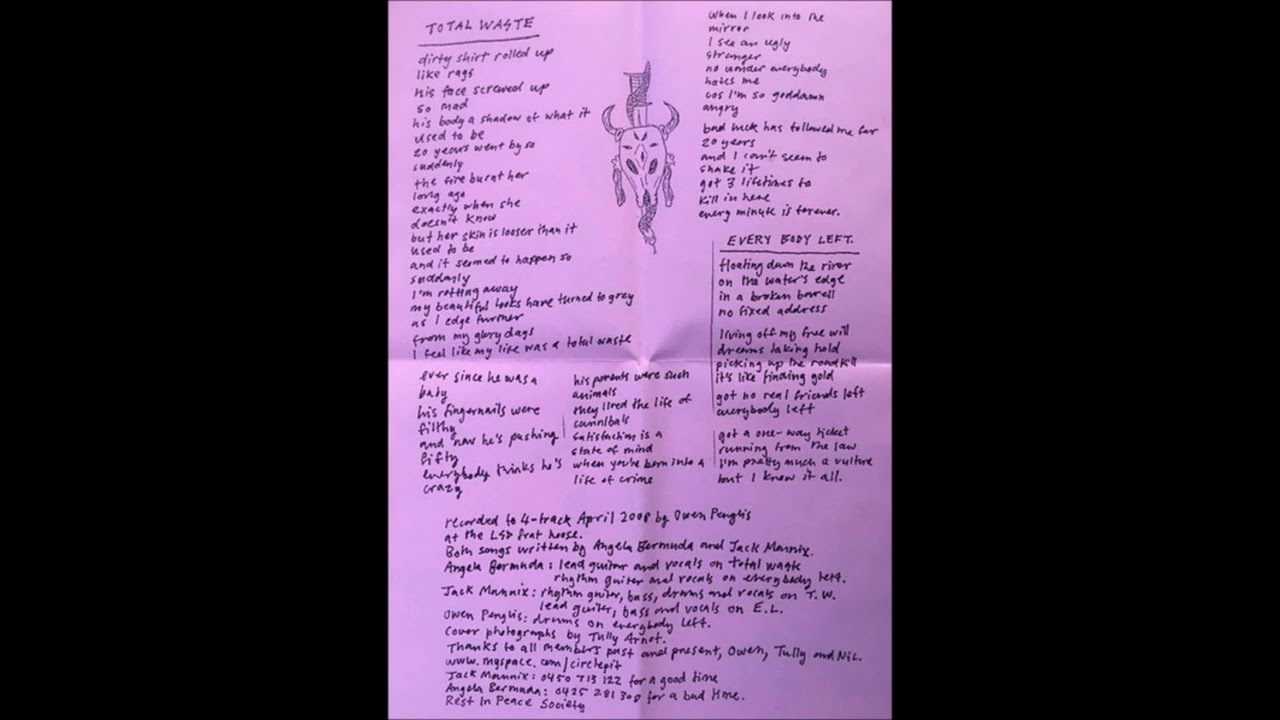 TOTAL WASTE
dirty shirt rolled up
like rags
his face screwed up
so mad
his body a shadow of what it
used to be
20 years went by so
suddenly
the fire burnt her
long ago
exactly when she
doesn't know
but her skin is looser than it
used to be
and it seemed to happen so
suddenly
I'm rotting away
my beautiful looks have turned to grey
as I edge further
from my glory days
I feel like my life was a total waste
ever since he was a
baby
his fingernails were
filthy
and now he's pushing
fifty
everybody thinks he's
crazy
his parents were such
animals
they lived the life of
cannibals
satisfaction is a
state of mind
when you're born into a
life of crime
When I look into the
mirror
I see an ugly
stranger
no wonder everybody
hates me
cos I'm so goddamn
angry
bad luck has followed me for
20 years
and I can't seem to
shake it
got 3 lifetimes to
kill in here
every minute is forever.
EVERY BODY LEFT.
floating down the river
on the water's edge
in a broken barrell
no fixed address
living off my free will
dreams taking hold
picking up the roadkill
it's like finding gold
got no real friends left
everybody left
got a one-way ticket
running from the law
I'm pretty much a vulture
but I know it all.
recorded to 4-track April 2008 by Owen Penglis
at the LSD frat house.
Both songs written by Angela Bermuda and Jack Mannix.
Angela Bermuda: lead guitar and vocals on total waste
rhythm guitar and vocals on everybody left.
Jack Mannix: rhythm guitar, bass, drums and vocals on T.W.
lead guitar, bass and vocals on E.L.
Owen Penglis: drums on everybody left.
Cover photographs by Tully Arnot.
Thanks to all members past and present, Owen, Tully and Nic.
www.myspace.com/circlepit
Jack Mannix: 0450 713 122 for a good time
Angela Bermuda: 0425 281 308 for a bad time.
Rest In Peace Society